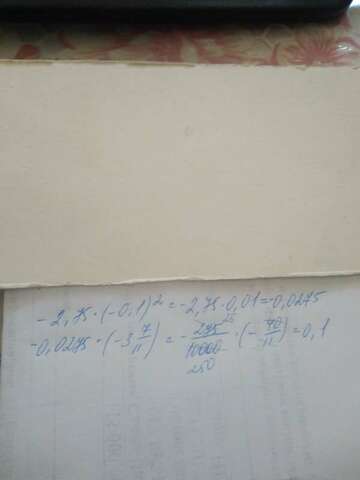 -2,75·(-0,1)² = -2,75·0,01 = -0,0275
-0,0275·(-3 7/11) = -275/10000·(-40/11) = 0,1
25
250